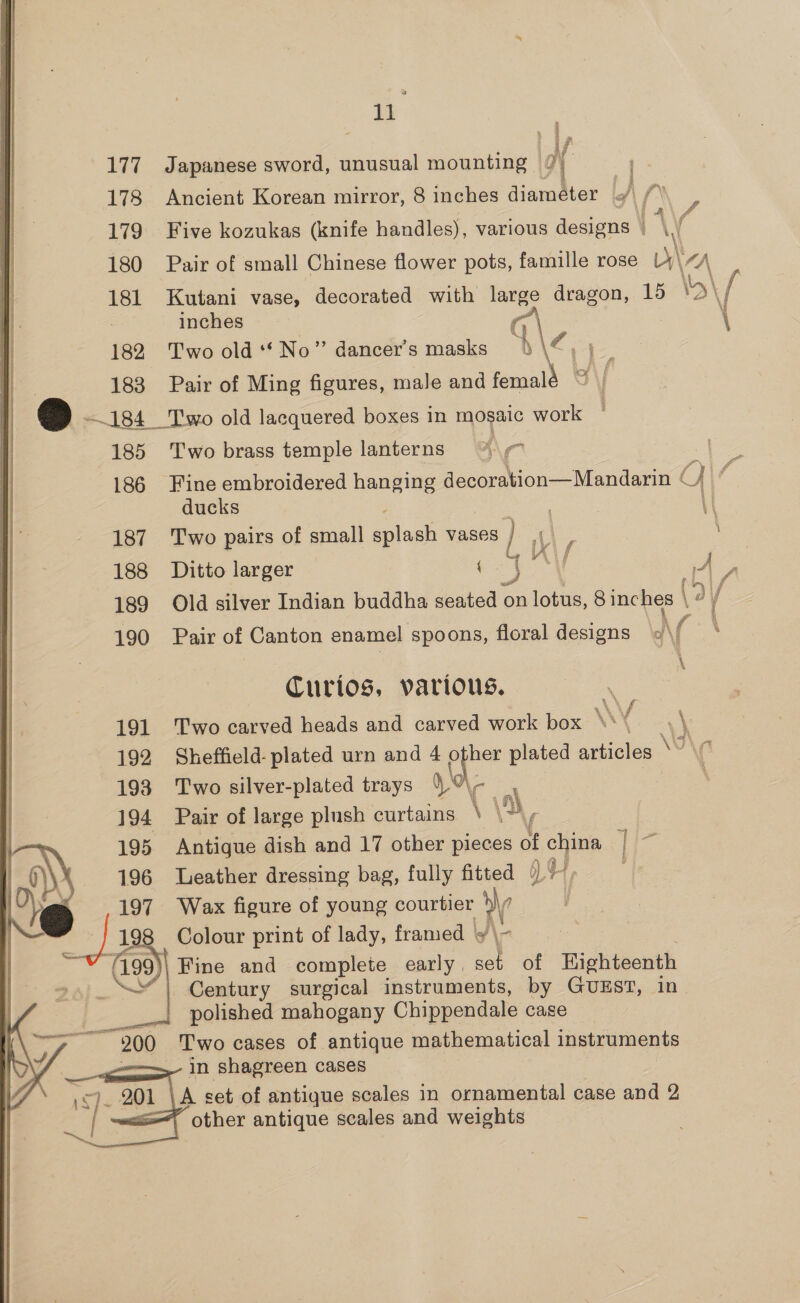 11
177 Japanese sword, unusual mounting
178 Ancient Korean mirror, 8 inches diameter
179 Five kozukas (knife handles), various designs
180 Pair of small Chinese flower pots, famille rose
181 Kutani vase, decorated with large dragon, 15
inches
182 Two old “ No ” dancer's masks
183 Pair of Ming figures, male and female
184 Two old lacquered boxes in mosaic work
185 Two brass temple lanterns
186 Fine embroidered hanging decoration—Mandarin
ducks
187 Two pairs of small splash vases
188 Ditto larger
189 Old silver Indian buddha seated on lotus, 8 inches
190 Pair of Canton enamel spoons, floral designs
Curios, various.
191 Two carved heads and carved work box
192 Sheffield-plated urn and 4 other plated articles
193 Two silver-plated trays
194 Pair of large plush curtains
195 Antique dish and 17 other pieces of china
196 Leather dressing bag, fully fitted
197 Wax figure of young courtier
198 Colour print of lady, framed
199 Fine and complete early set of Eighteenth
Century surgical instruments, by GUEST, in
polished mahogany Chippendale case
200 Two cases of antique mathematical instruments
in shagreen cases
201 A set of antique scales in ornamental case and 2
other antique scales and weights